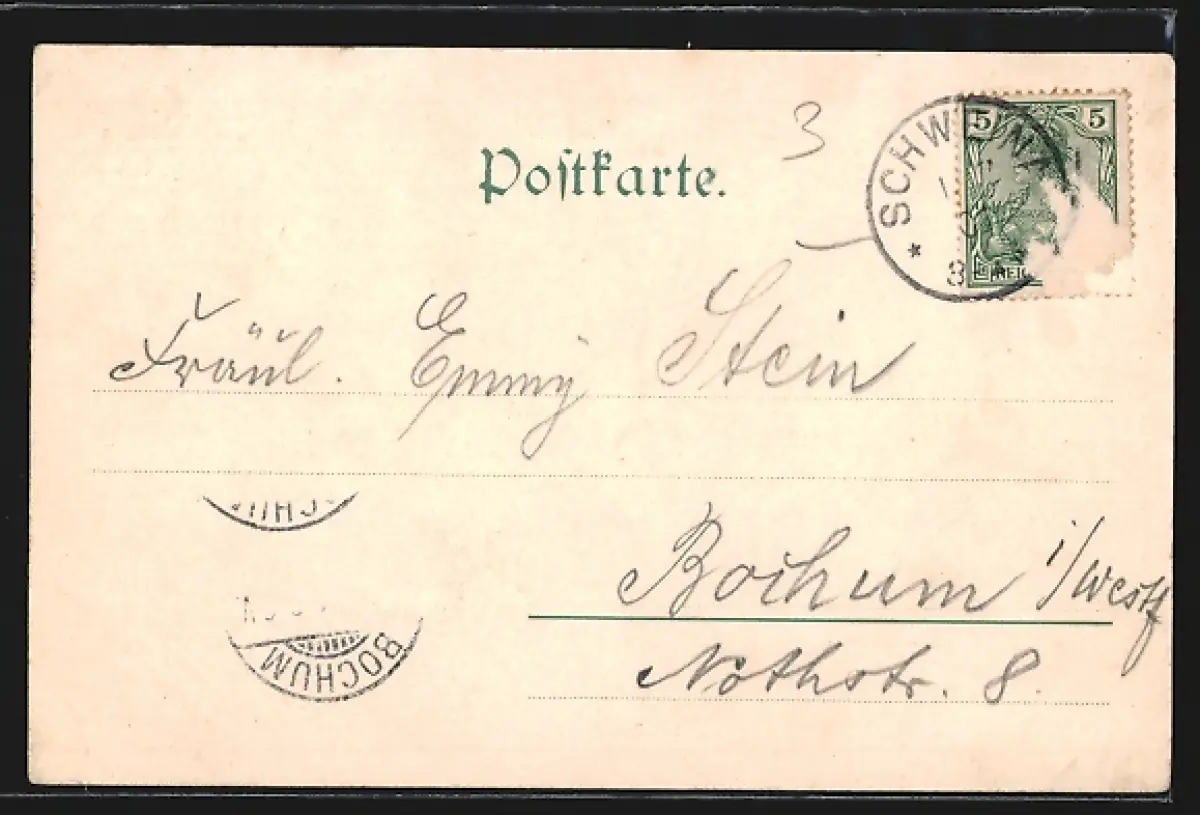 3
Postkarte.
5 5
SCHW
8
REIC
Fräul. Emmy Stein
Bochum i/Westf
Nothstr. 8.
CHU
BOCHUM